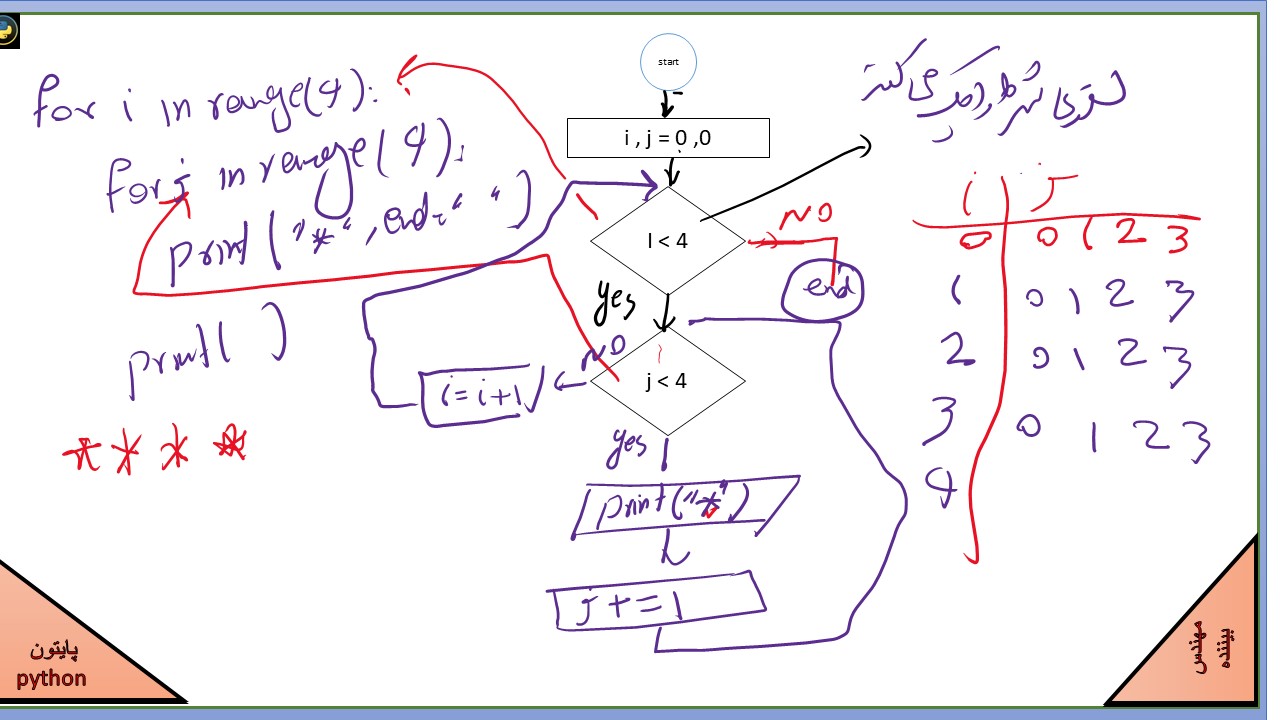 for i in range(4):
for j in range(4):
print("*", end=" ")
print( )
* * * *
start
i , j = 0 ,0
I < 4
NO
end
yes
j < 4
NO
i = i+1
yes
print("*")
j += 1
i j
0 0 1 2 3
1 0 1 2 3
2 0 1 2 3
3 0 1 2 3
4
پایتون
python
مهندس
بیننده